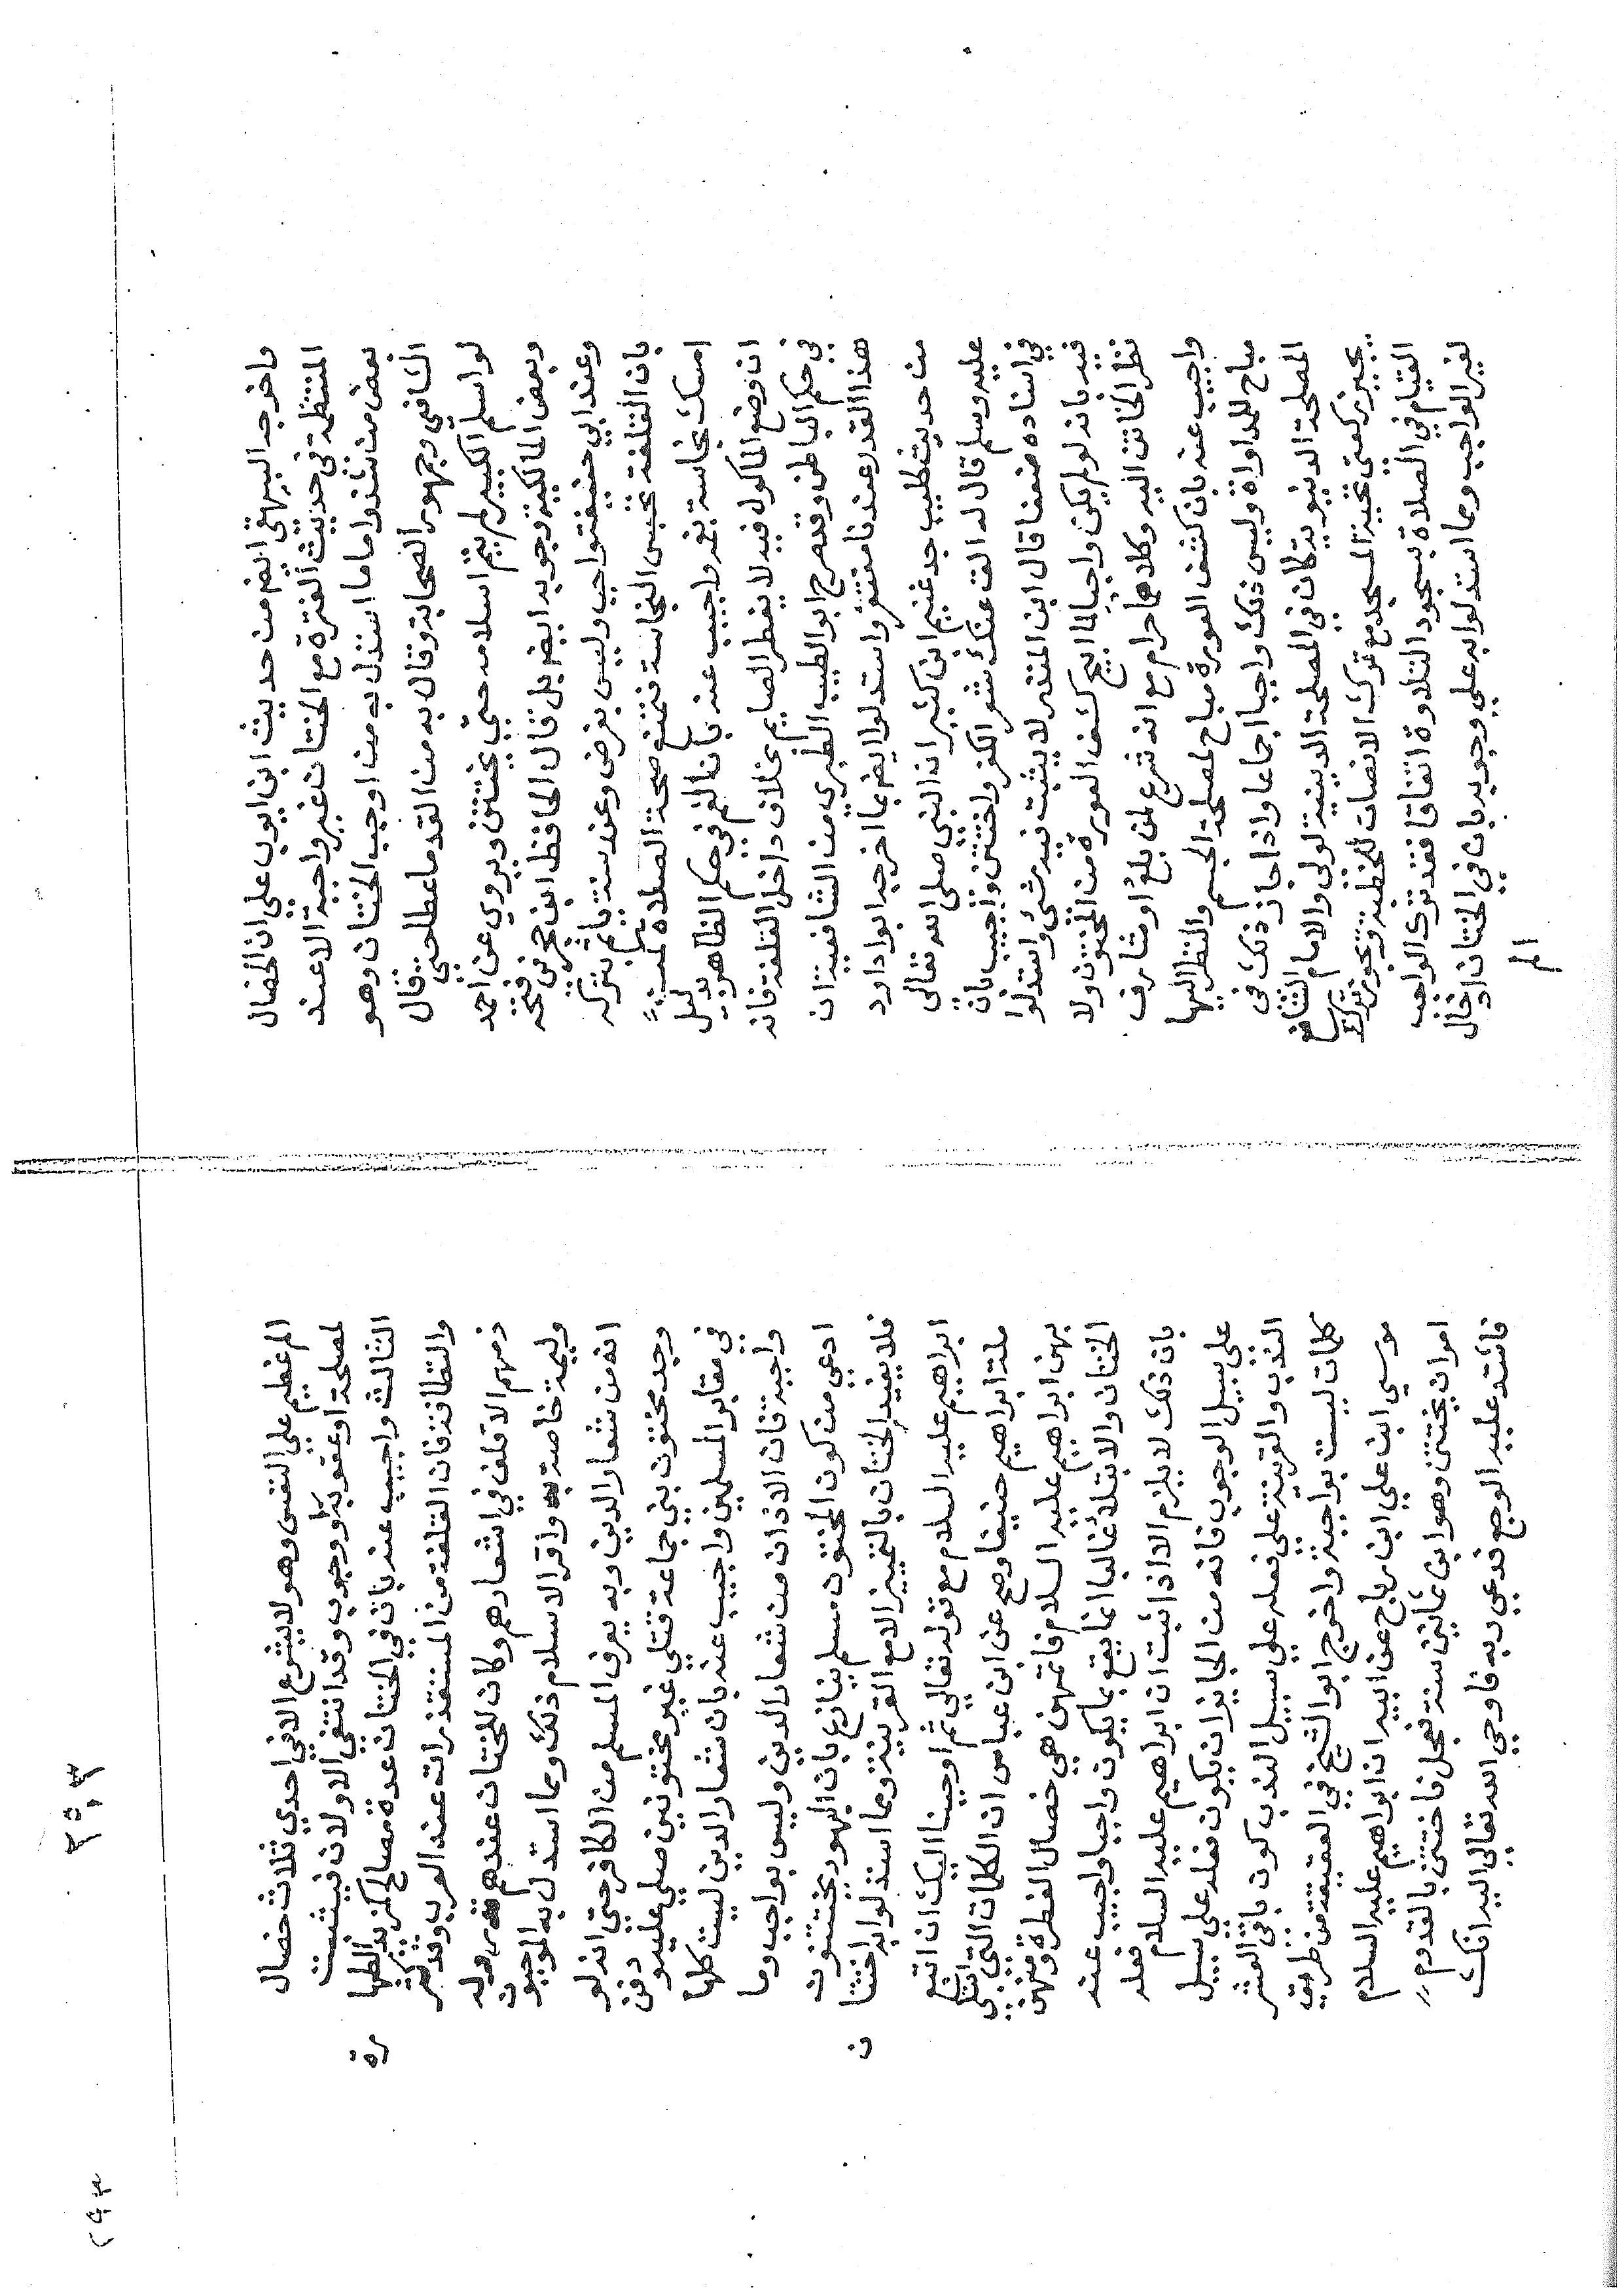 واخرجه البيهقي ايضا من حديث ابن ايوب على ان الخصال
المنتظمة في حديث الفترة مع الختان غير واجبة الا عند
بعض من شذوا ما ما استدل به من اوجب الختان وهو
الشافي وجمهور الصحابة وقال به من القدما عطا حتى قال
لو اسلم الكبير لم يتم اسلامه حتى يختتن ويروي عن احمد
وبعض المالكية وجوبه ايضا بل قال الحافظ ابن حجر في فتحه
وعند ابي حنيفة واجب وليس بفرض وعنه سنة ياثم بتركه
بان القلفة تحبس النجاسة فتمنع صحة الصلاة كمن
امسك نجاسة بفمه واجيب عنه بان الفم في حكم الظاهر بدليل
ان وضع الماكول فيه لا يفطر الصايم بخلاف داخل القلفة فانه
في حكم الباطن وقد صرح ابو الطيب الطبري من الشافعية ان
هذا القدر عندنا مغتفر واستدلوا ايضا بما اخرجه ابو داود
من حديث كليب جد غنيم ابن كثير ان النبي صلى الله تعالى
عليه وسلم قال له الق عنك شعر الكفر واختتن واجيب بان
في اسناده ضعفا قال ابن المنذر لا يثبت فيه شي واستدلوا
فيه بانه لو لم يكن واجبا لما ابيح كشف العورة من المختون ولا
نظر الخاتن اليه وكلاهما حرام مع انه شرع لمن بلغ او شارف
واجيب عنه بان كشف العورة مباح لمصلحة الجسم والنظر اليها
مباح للمداواة وليس ذلك واجبا اجماعا واذا جاز ذلك في
المصلحة الدنيوية كان في المصلحة الدينية اولى والامام الشافعي
يجيز ركعتي تحية المسجد مع ترك الانصات للخطبة وتجويز ترك
القيام في الصلاة بسجود التلاوة اتفاقا فقد ترك الواجب
لغير الواجب ومما استدلوا به على وجوبه بان في الختان ادخال
الم
الم عظيم على النفس وهو لا يشرع الا في احدى ثلاث خصال
لمصلحة او عقوبة او وجوب وقد انتفى الاولان فيثبت
الثالث واجيب عنه بان في الختان عدة مصالح كمزيد الطها
رة
والنظافة فان القلفة من المستقذرات عند العرب وقد كثر
ذمهم الاقلف في اشعارهم وكان للختان عندهم قدر وله
وليمة خاصة به واقر الاسلام ذلك ومما استدل به الموجبون
انه من شعار الدين وبه يعرف المسلم من الكافر حتى انه لو
وجد مختون بين جماعة قتلى غير مختونين صلي عليه ودفن
في مقابر المسلمين واجيب عنه بان شعار الدين ليست كلها
واجبة فان الاذان من شعار الدين وليس بواجب وما
ادعي من كون المختون مسلم ينازع بان اليهود يختتنون
فلا يفيد الختان بالتمييز الا مع القرينة ومما استدلوا به اختتا
ن
ابراهيم عليه السلام مع قوله تعالى ثم اوحينا اليك ان اتبع
ملة ابراهيم حنيفا وصح عن ابن عباس ان الكلمات التي ابتلى
بهن ابراهيم عليه السلام فاتمهن هي خصال الفطرة ومنهن
الختان والابتلا غالبا انما يقع بما يكون واجبا واجيب عنه
بان ذلك لا يلزم الا اذا ثبت ان ابراهيم عليه السلام فعله
على سبيل الوجوب فانه من الجايز ان يكون فعله على سبيل
الندب والقرينة على فعله على سبيل الندب كون باقي العشر
كلمات ليست بواجبة واخرج ابو الشيخ في العقيقة من طريق
موسى ابن علي ابن رباح عن ابيه ان ابراهيم عليه السلام
امر ان يختتن وهو ابن ثمانين سنة فعجل فاختتن بالقدوم
فاشتد عليه الوجع فدعى ربه فاوحى الله تعالى اليه انك